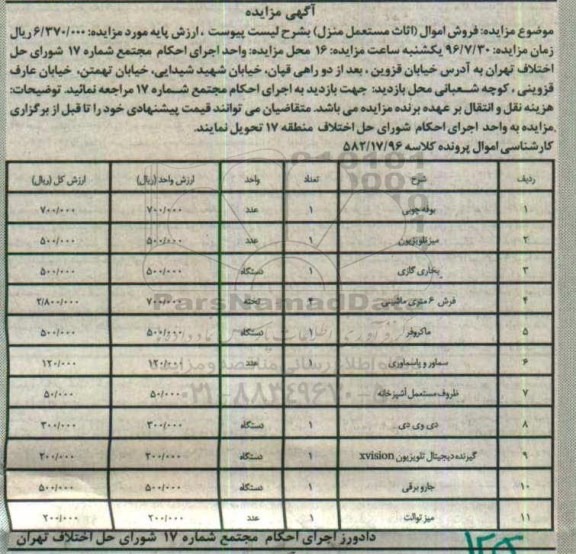 آگهی مزایده
موضوع مزایده: فروش اموال (اثاث مستعمل منزل) بشرح لیست پیوست ، ارزش پایه مورد مزایده: ۶/۳۷۰/۰۰۰ ریال
زمان مزایده: ۹۶/۷/۳۰ یکشنبه ساعت مزایده: ۱۶ محل مزایده: واحد اجرای احکام مجتمع شماره ۱۷ شورای حل
اختلاف تهران به آدرس خیابان قزوین ، بعد از دو راهی قپان، خیابان شهید شیدایی، خیابان تهمتن، خیابان عارف
قزوینی ، کوچه شعبانی محل بازدید: جهت بازدید به اجرای احکام مجتمع شماره ۱۷ مراجعه نمائید. توضیحات:
هزینه نقل و انتقال بر عهده برنده مزایده می باشد. متقاضیان می توانند قیمت پیشنهادی خود را تا قبل از برگزاری
مزایده به واحد اجرای احکام شورای حل اختلاف منطقه ۱۷ تحویل نمایند.
کارشناسی اموال پرونده کلاسه ۵۸۲/۱۷/۹۶
ردیف شرح تعداد واحد ارزش واحد (ریال) ارزش کل (ریال)
۱ بوفه چوبی ۱ عدد ۷۰۰/۰۰۰ ۷۰۰/۰۰۰
۲ میز تلویزیون ۱ عدد ۵۰۰/۰۰۰ ۵۰۰/۰۰۰
۳ بخاری گازی ۱ دستگاه ۵۰۰/۰۰۰ ۵۰۰/۰۰۰
۴ فرش ۶ متری ماشینی ۴ تخته ۷۰۰/۰۰۰ ۲/۸۰۰/۰۰۰
۵ ماکروفر ۱ دستگاه ۵۰۰/۰۰۰ ۵۰۰/۰۰۰
۶ سماور و پاسماوری ۱ عدد ۱۲۰/۰۰۰ ۱۲۰/۰۰۰
۷ ظروف مستعمل آشپزخانه ۱ ۵۰/۰۰۰ ۵۰/۰۰۰
۸ دی وی دی ۱ دستگاه ۳۰۰/۰۰۰ ۳۰۰/۰۰۰
۹ گیرنده دیجیتال تلویزیون xvision ۱ دستگاه ۲۰۰/۰۰۰ ۲۰۰/۰۰۰
۱۰ جارو برقی ۱ دستگاه ۵۰۰/۰۰۰ ۵۰۰/۰۰۰
۱۱ میز توالت ۱ عدد ۲۰۰/۰۰۰ ۲۰۰/۰۰۰
دادورز اجرای احکام مجتمع شماره ۱۷ شورای حل اختلاف تهران
ParsNamadData
۰۲۱-۸۸۳۴۹۶۷۰